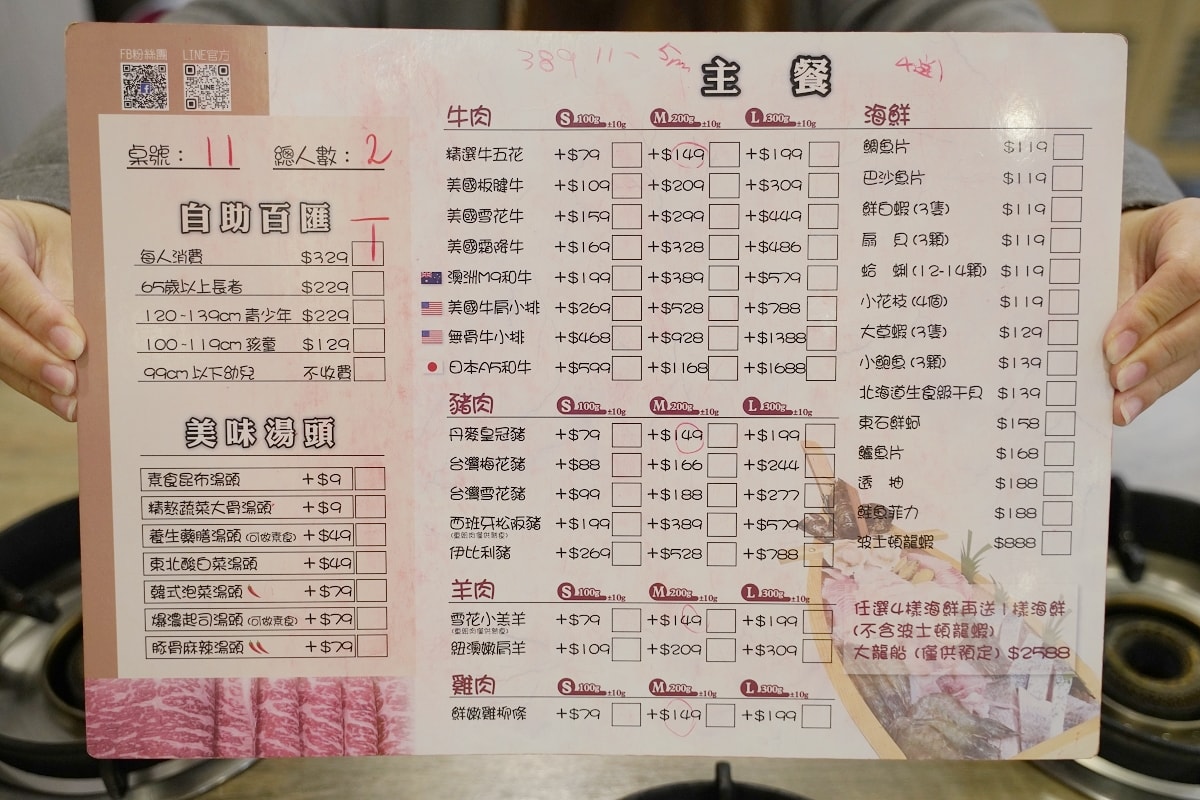 FB粉絲團 LINE官方
LINE
桌號：11 總人數：2
自助百匯
每人消費 $329
65歲以上長者 $229
120-139cm 青少年 $229
100-119cm 孩童 $129
99cm以下幼兒 不收費
美味湯頭
素食昆布湯頭 +$9
精熬蔬菜大骨湯頭 +$9
養生藥膳湯頭 (可做素食) +$49
東北酸白菜湯頭 +$49
韓式泡菜湯頭 +$79
爆濃起司湯頭 (可做素食) +$79
豚骨麻辣湯頭 +$79
389 11-
主餐
4選1
牛肉 S 100g ±10g M 200g ±10g L 300g ±10g
精選牛五花 +$79 +$149 +$199
美國板腱牛 +$109 +$209 +$309
美國雪花牛 +$159 +$299 +$449
美國霜降牛 +$169 +$328 +$486
澳洲M9和牛 +$199 +$389 +$579
美國牛肩小排 +$269 +$528 +$788
無骨牛小排 +$468 +$928 +$1388
日本A5和牛 +$599 +$1168 +$1688
豬肉 S 100g ±10g M 200g ±10g L 300g ±10g
丹麥皇冠豬 +$79 +$149 +$199
台灣梅花豬 +$88 +$166 +$244
台灣雪花豬 +$99 +$188 +$277
西班牙松阪豬 +$199 +$389 +$579
伊比利豬 +$269 +$528 +$788
羊肉 S 100g ±10g M 200g ±10g L 300g ±10g
雪花小羔羊 +$79 +$149 +$199
紐澳嫩肩羊 +$109 +$209 +$309
雞肉 S 100g ±10g M 200g ±10g L 300g ±10g
鮮嫩雞柳條 +$79 +$149 +$199
海鮮
鯛魚片 $119
巴沙魚片 $119
鮮白蝦(3隻) $119
扇貝(3顆) $119
蛤蜊(12-14顆) $119
小花枝(4個) $119
大草蝦(3隻) $129
小鮑魚(3顆) $139
北海道生食級干貝 $139
東石鮮蚵 $158
鱸魚片 $168
透抽 $188
鮭魚菲力 $188
波士頓龍蝦 $888
任選4樣海鮮再送1樣海鮮
(不含波士頓龍蝦)
大龍船 (僅供預定) $2588